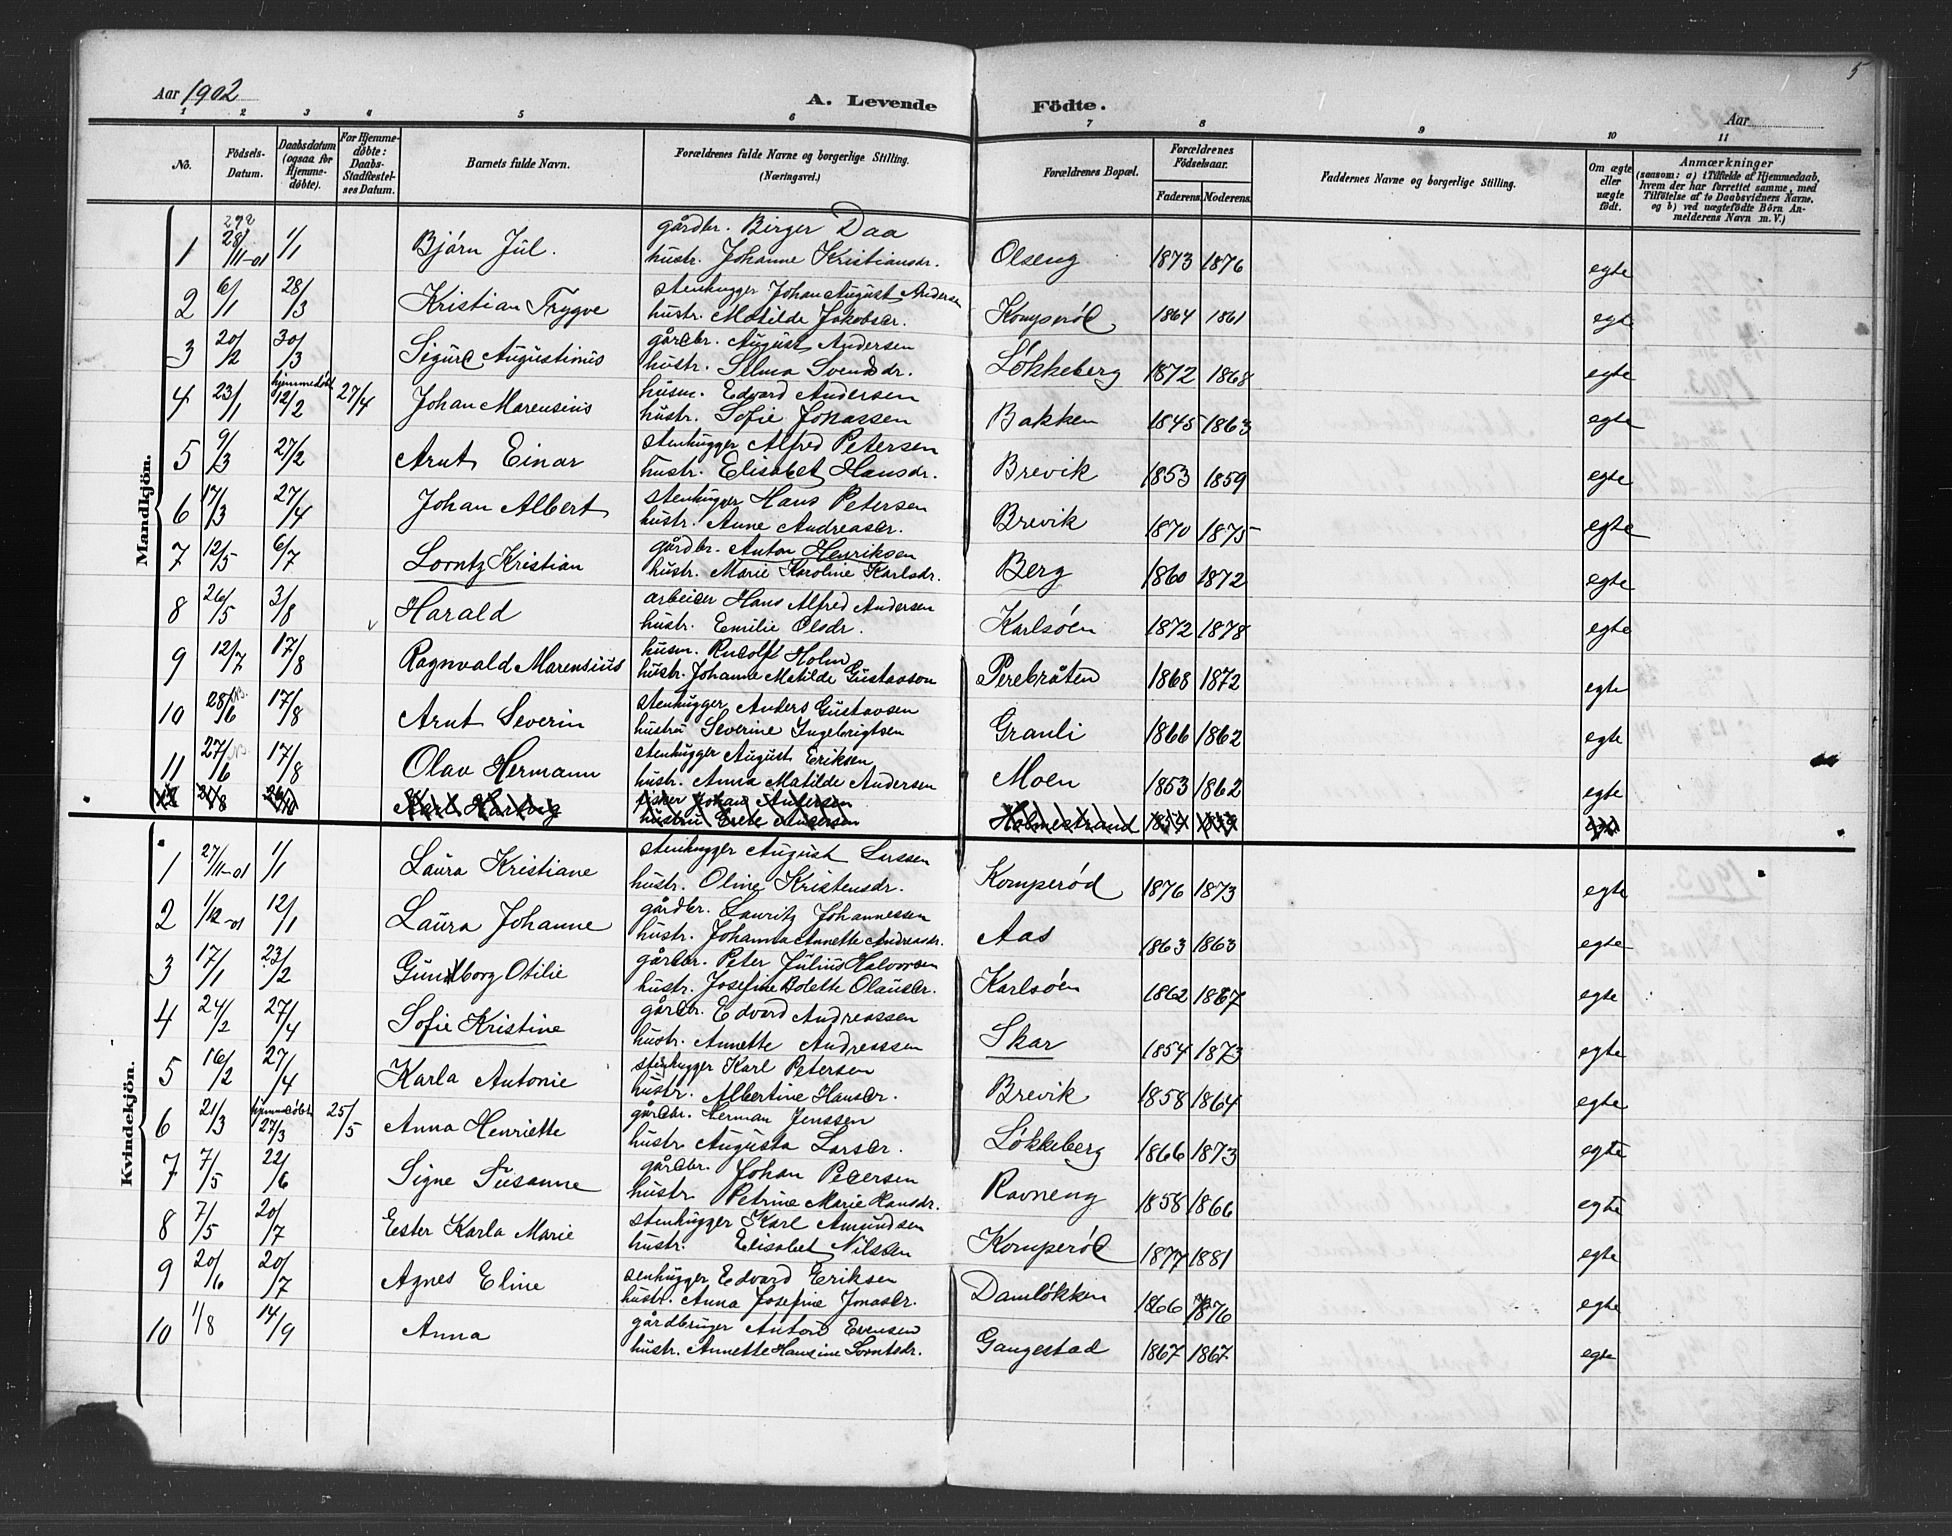 5
Aar 1902
A. Levende Födte.
Aar
1 2 3 4 5 6 7 8 9 10 11
No. Födsels-Datum. Daabsdatum (ogsaa for Hjemme-döbte). For Hjemme-döbte: Daabs-Stadfæstel-ses Datum. Barnets fulde Navn. Forældrenes fulde Navne og borgerlige Stilling. (Næringsvei.) Forældrenes Bopæl. Forældrenes Födselsaar. Faderens. Moderens. Faddernes Navne og borgerlige Stilling. Om ægte eller uægte födt. Anmærkninger (saasom: a) i Tilfælde af Hjemmedaab, hvem der har forrettet samme, med Tilföielse af to Daabsvidners Navne, og b) ved uægtefödte Börn An-melderens Navn m. V.)
Mandkjön.
1 28/11-01 1/1 Bjørn Jul. gårdbr. Birger Daa
hustr. Johanne Kristiansdr. Olseng 1873 1876 egte
2 6/1 28/3 Kristian Trygve stenhugger Johan August Andersen
hustr. Matilde Jakobsdr. Komperød 1864 1861 egte
3 20/2 30/3 Sigurd Augustinus gårdbr. August Andersen
hustr. Selma Svendsdr. Løkkeberg 1872 1868 egte
4 23/1 hjemmedøbt 12/2 27/4 Johan Marensius husm. Edvard Andersen
hustr. Sofie Jonassen Bakken 1845 1863 egte
5 9/3 27/2 Arnt Einar stenhugger Alfred Petersen
hustr. Elisabet Hansdr. Brevik 1853 1859 egte
6 17/3 27/4 Johan Albert stenhugger Hans Petersen
hustr. Anne Andreasdr. Brevik 1870 1875 egte
7 12/5 6/7 Lorntz Kristian gårdbr. Anton Henriksen
hustr. Marie Karoline Karlsdr. Berg 1860 1872 egte
8 26/5 3/8 Harald arbeider Hans Alfred Andersen
hustr. Emilie Olsdr. Karlsøen 1872 1878 egte
9 12/7 17/8 Ragnvald Marensius husm. Rudolf Holm
hustr. Johanne Matilde Gustavson Perebråten 1868 1872 egte
10 28/6 17/8 Arnt Severin stenhugger Anders Gustavsen
hustru Severine Ingebrigtsen Granli 1866 1862 egte
11 27/6 17/8 Olav Hermann stenhugger August Eriksen
hustr. Anna Matilde Andersen Moen 1853 1862 egte
Karl Hartvig fisker Johan Andersen
hustru Grete Andersen Holmestrand
Kvindekjön.
1 27/11-01 1/1 Laura Kristiane stenhugger August Larssen
hustr. Oline Kristensdr. Komperød 1876 1873 egte
2 1/12-01 12/1 Laura Johanne gårdbr. Lauritz Johannessen
hustr. Johanna Annette Andreasdr. Aas 1863 1863 egte
3 17/1 23/2 Gunborg Otilie gårdbr. Peter Julius Halvorsen
hustr. Josefine Bolette Olausdr. Karlsøen 1862 1867 egte
4 24/2 27/4 Sofie Kristine gårdbr. Edvard Andreassen
hustr. Annette Andressen Skar 1854 1873 egte
5 16/2 27/4 Karla Antonie stenhugger Karl Petersen
hustr. Albertine Hansdr. Brevik 1858 1864 egte
6 21/3 hjemmedøbt 27/3 25/5 Anna Henriette gårdbr. Herman Jenssen
hustr Augusta Larsdr. Løkkeberg 1866 1873 egte
7 7/5 22/6 Signe Susanne gårdbr. Johan Pedersen
hustr Petrine Marie Hansdr. Ravneng 1858 1866 egte
8 7/5 20/7 Ester Karla Marie stenhugger Karl Amundsen
hustr. Elisabet Nilssen Komperød 1877 1881 egte
9 20/6 20/7 Agnes Eline senhugger Edvard Eriksen
hustr. Anna Josefine Jonasdr. Damløkken 1866 1876 egte
10 1/8 14/9 Anna gårdbruger Anton Evensen
hustr. Annette Hansine Lorntsdr. Gangestad 1867 1867 egte